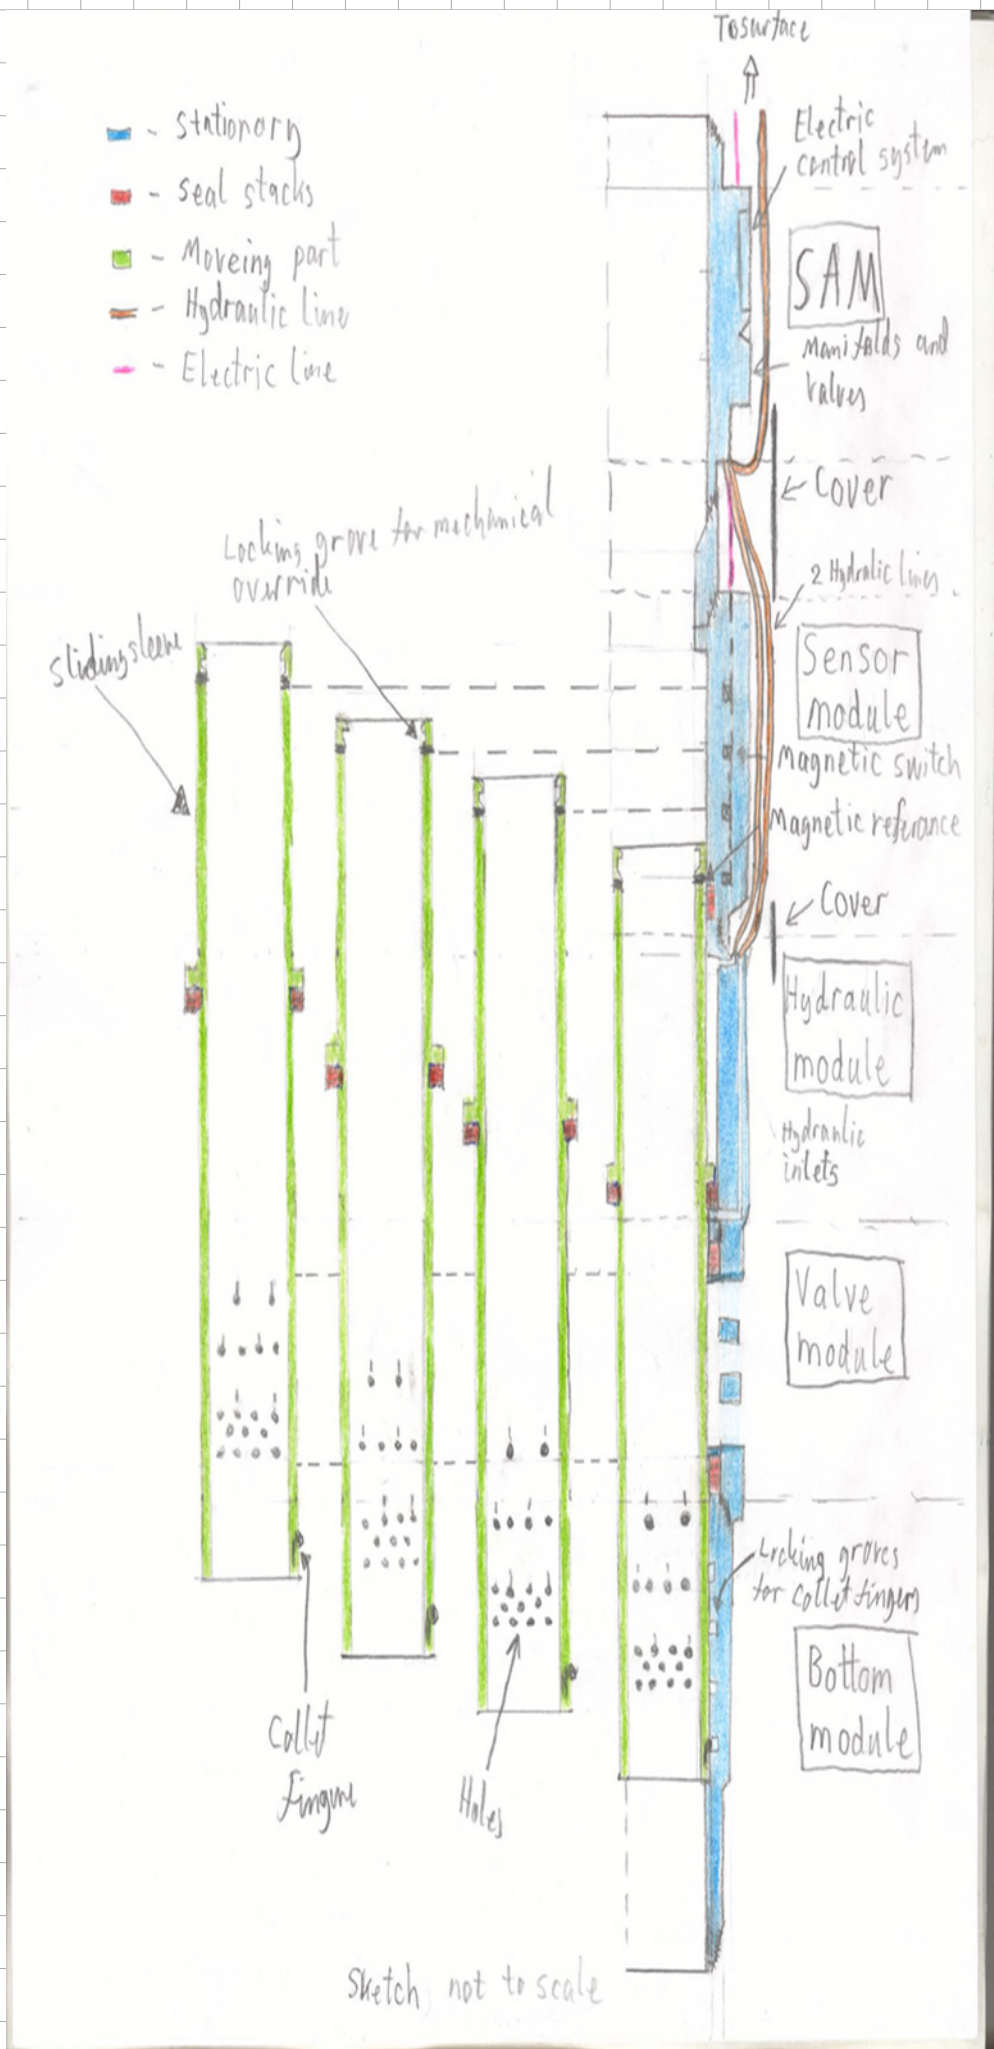 To surface
Electric
control system
- Stationory
- Seal stacks
- Moveing part
- Hydraulic Line
- Electric line
SAM
Manifolds and
Valves
Cover
Locking grove for mechanical
override
2 Hydralic Lines
Sliding sleeve
Sensor
module
Magnetic switch
Magnetic referance
Cover
Hydraulic
module
Hydraulic
inlets
Valve
module
Locking groves
for Collet fingers
Bottom
module
Collet
Holes
Sketch not to scale